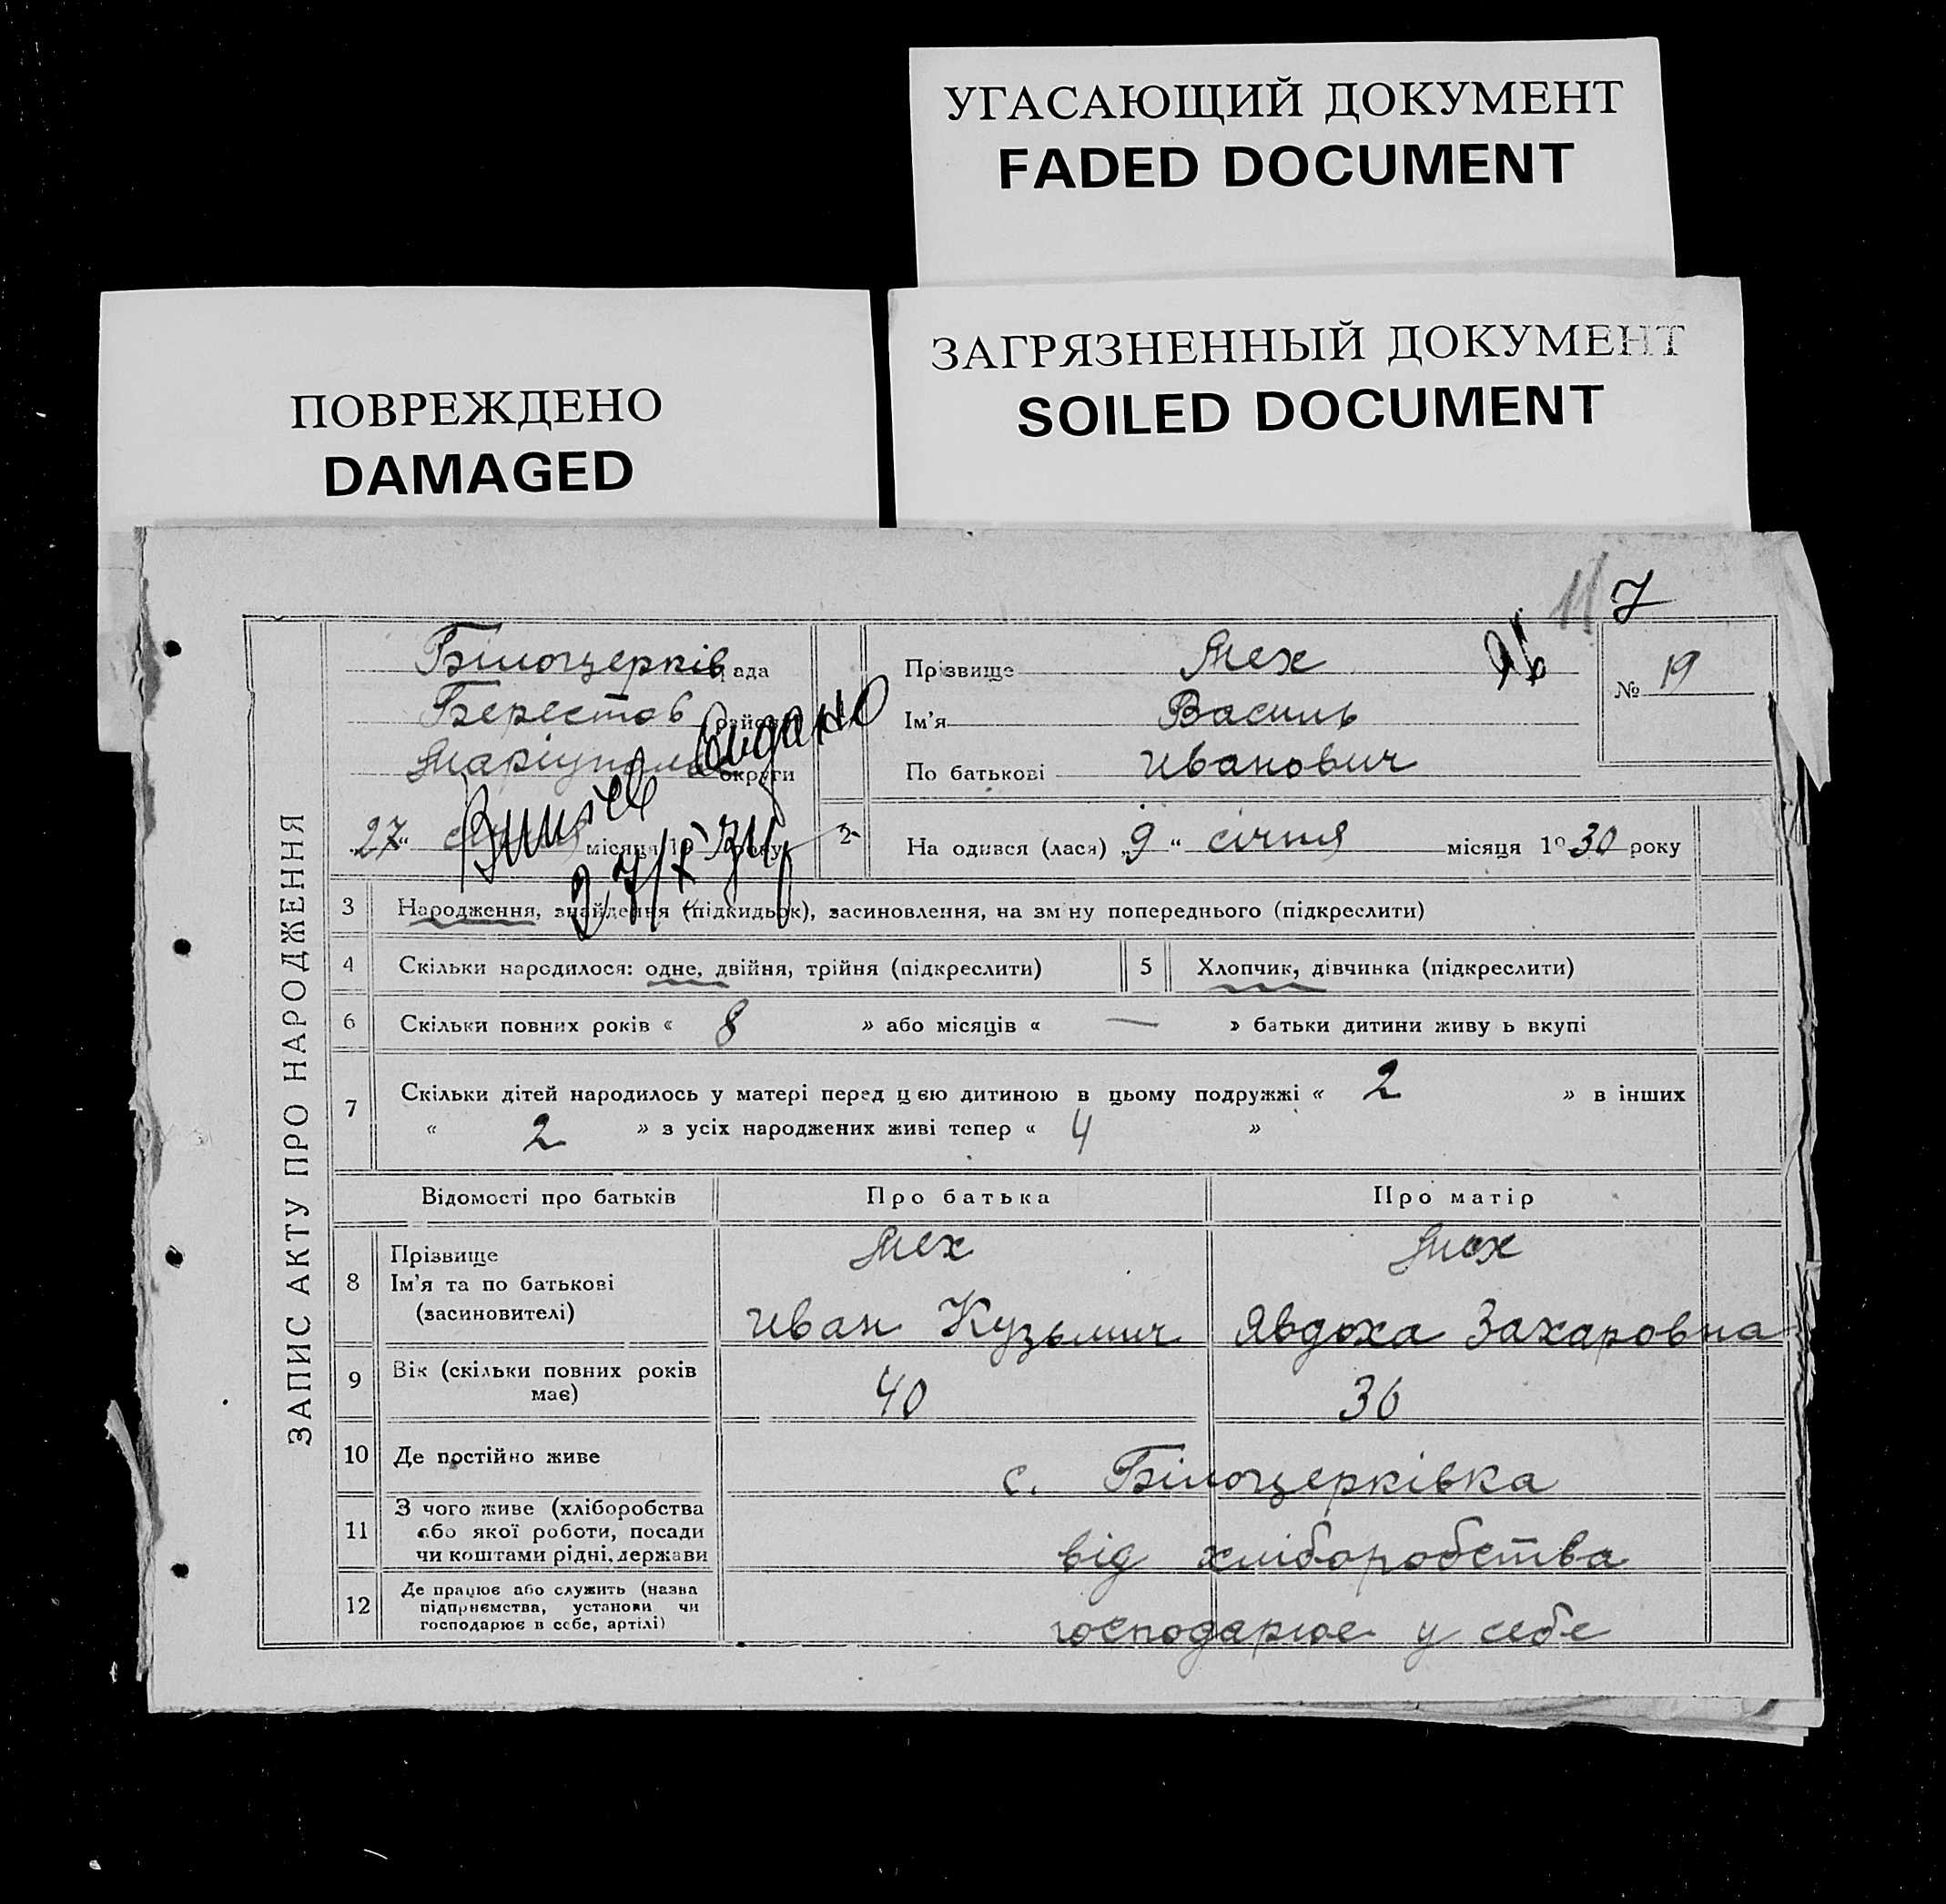 УГАСАЮЩИЙ ДОКУМЕНТ
FADED DOCUMENT
ЗАГРЯЗНЕННЫЙ ДОКУМЕНТ
SOILED DOCUMENT
ПОВРЕЖДЕНО
DAMAGED
7
ЗАПИС АКТУ ПРО НАРОДЖЕННЯ
Білоцерків рада
Берестов району
Маріуполь округи
видано
27/X 34
„27“ січня місяця 19 року
2
Прізвище Мех
Ім'я Василь
По батькові Иванович
№ 19
Народився (лася) „9“ січня місяця 1930 року
3 Народження, знайдення (підкидьок), засиновлення, на зміну попереднього (підкреслити)
4 Скільки народилося: одне, двійня, трійня (підкреслити)
5 Хлопчик, дівчинка (підкреслити)
6 Скільки повних років « 8 » або місяців « — » батьки дитини живуть вкупі
7 Скільки дітей народилось у матері перед цею дитиною в цьому подружжі « 2 » в інших
« 2 » з усіх народжених живі тепер « 4 »
Відомості про батьків Про батька Про матір
8 Прізвище Мех Мех
Ім'я та по батькові
(засиновителі) Иван Кузьмич Явдоха Захаровна
9 Вік (скільки повних років
має) 40 36
10 Де постійно живе с. Білоцерківка
11 З чого живе (хліборобства
або якої роботи, посади
чи коштами рідні, держави від хліборобства
12 Де працює або служить (назва
підприємства, установи чи
господарює в себе, артілі) господарює у себе